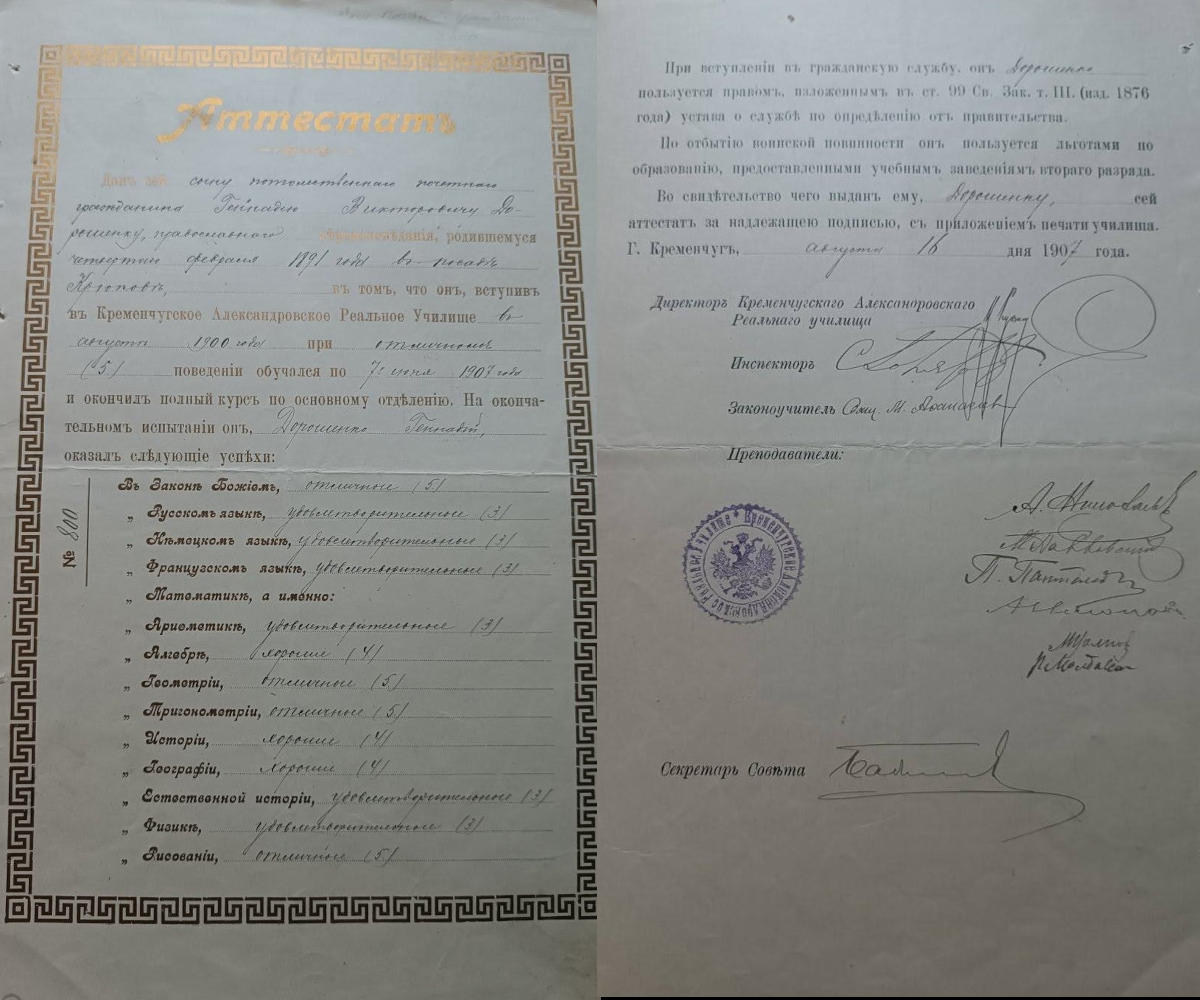 Аттестатъ
Данъ сей сыну потомственнаго почетнаго
гражданина Геннадію Викторовичу До-
рошенку, православнаго вѣроисповѣданія, родившемуся
четвертаго февраля 1891 года въ посадѣ
Крюковѣ, въ томъ, что онъ, вступивъ
въ Кременчугское Александровское Реальное Училище въ
августѣ 1900 года при отличномъ
(5) поведеніи обучался по 7е іюня 1907 года
и окончилъ полный курсъ по основному отдѣленію. На оконча-
тельномъ испытаніи онъ, Дорошенко Геннадій,
оказалъ слѣдующіе успѣхи:
№ 800
Въ Законѣ Божіемъ, отличные (5)
„ Русскомъ языкѣ, удовлетворительные (3)
„ Нѣмецкомъ языкѣ, удовлетворительные (3)
„ Французскомъ языкѣ, удовлетворительные (3)
„ Математикѣ, а именно:
„ Ариѳметикѣ, удовлетворительные (3)
„ Алгебрѣ, хорошіе (4)
„ Геометріи, отличные (5)
„ Тригонометріи, отличные (5)
„ Исторіи, хорошіе (4)
„ Географіи, хорошіе (4)
„ Естественной исторіи, удовлетворительные (3)
„ Физикѣ, удовлетворительные (3)
„ Рисованіи, отличные (5)
При вступленіи въ гражданскую службу, онъ Дорошенко
пользуется правомъ, изложеннымъ въ ст. 99 Св. Зак. т. III. (изд. 1876
года) устава о службѣ по опредѣленію отъ правительства.
По отбытію воинской повинности онъ пользуется льготами по
образованію, предоставленными учебнымъ заведеніямъ втораго разряда.
Во свидѣтельство чего выданъ ему, Дорошенку, сей
аттестатъ за надлежащею подписью, съ приложеніемъ печати училища.
Г. Кременчугъ, августа 16 дня 1907 года.
Директоръ Кременчугскаго Александровскаго
Реальнаго училища
Инспекторъ
Законоучитель Свящ. М. Аѳанасьев
Преподаватели:
Кременчугское Александровское Реальное Училище
Секретарь Совѣта